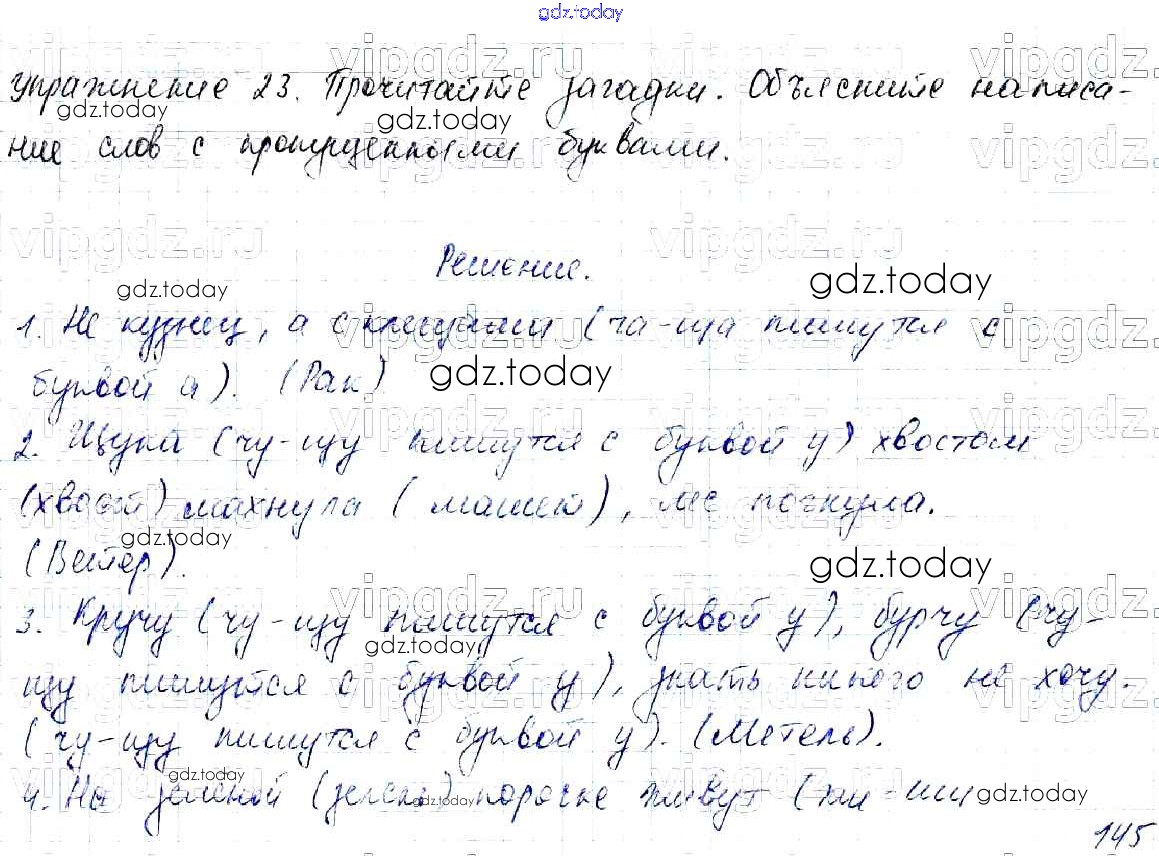 gdz.today
Упражнение 23. Прочитайте загадки. Объясните написа-
ние слов с пропущенными буквами.
Решение.
1. Не кузнец, а с клещами (ча-ща пишутся с
буквой а). (Рак)
2. Щука (чу-щу пишутся с буквой у) хвостом
(хвост) махнула (машет), лес погнула.
(Ветер).
3. Кручу (чу-щу пишутся с буквой у), бурчу (чу-
щу пишутся с буквой у), знать никого не хочу.
(чу-щу пишутся с буквой у). (Метель).
4. На зелёной живут (жи-ши
145